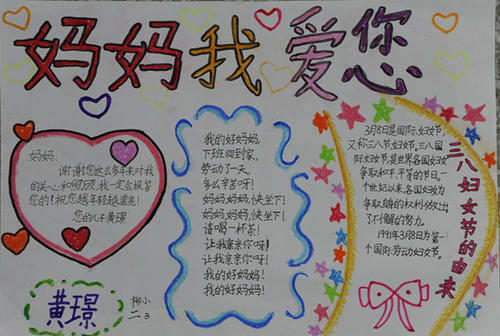 妈妈我爱您
妈妈:
谢谢您这么多年来对我
的关心和照顾,我一定会报答
您的!祝您越年轻越漂亮!
您的儿子黄璟
我的好妈妈,
下班回到家,
劳动了一天,
多么辛苦呀!
妈妈妈妈快坐下!
妈妈,妈妈,快坐下!
请喝一杯茶!
让我亲亲你呀!
让我亲亲你呀!
我的好妈妈!
我的好妈妈!
3月8日是国际妇女节,
又称三八节妇女节。三八国
际妇女节,是世界各国妇女
争取和平、平等的节日。一
个世纪以来,各国妇女为
争取她们的权利做出
了不懈的努力。
1991年3月8日为第一
个国际劳动妇女节。
三八妇女节的由来
黄璟
柳小
二3